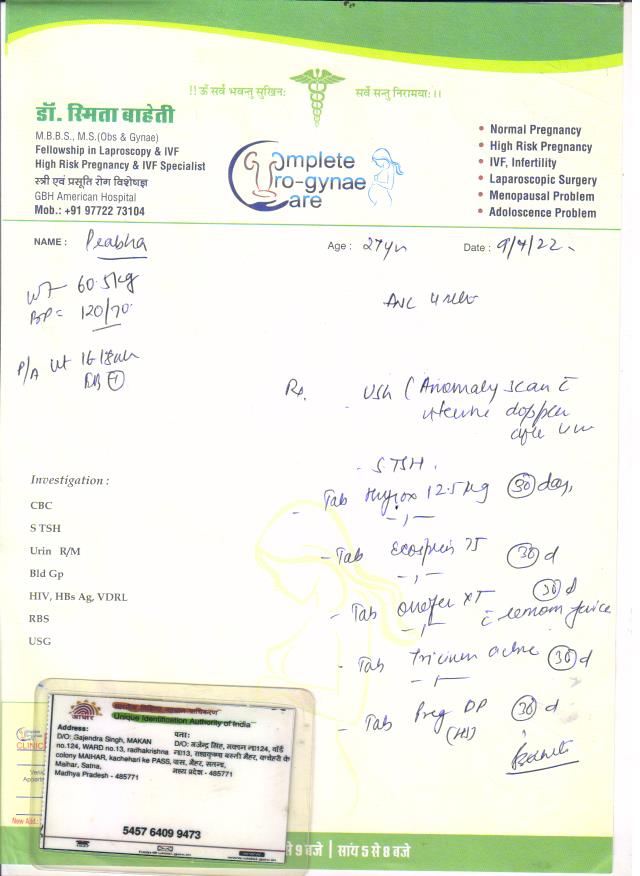 !!ॐ सर्व भवन्तु सुखिनः सर्वे सन्तु निरामयाः।।
डॉ. स्मिता बाहेती
M.B.B.S., M.S.(Obs & Gynae)
Fellowship in Laproscopy & IVF
High Risk Pregnancy & IVF Specialist
स्त्री एवं प्रसूति रोग विशेषज्ञ
GBH American Hospital
Mob.: +91 97722 73104
Complete
Uro-gynae
Care
• Normal Pregnancy
• High Risk Pregnancy
• IVF, Infertility
• Laparoscopic Surgery
• Menopausal Problem
• Adoloscence Problem
NAME : Prabha Age : 27yr Date : 9/4/22
WT- 60.5kg
BP = 120/70
ANC
P/A
USG (Anomaly scan c
uterine doppler
- S.TSH.
- Tab 12.5 30 days
- Tab Ecosprin 75 30 d
- Tab Orofer XT 30 d
c lemon juice
- Tab Tricium active 30 d
- Tab Preg DP 30 d
(HS)
Investigation :
CBC
S TSH
Urin R/M
Bld Gp
HIV, HBs Ag, VDRL
RBS
USG
आधार
Unique Identification Authority of India
Address:
D/O: Gajendra Singh, MAKAN
no.124, WARD no.13, radhakrishna
colony MAIHAR, kachehari ke PASS,
Maihar, Satna,
Madhya Pradesh - 485771
पता:
मध्य प्रदेश - 485771
5457 6409 9473
CLINIC
New Add.:
से 9 बजे | सांय 5 से 8 बजे